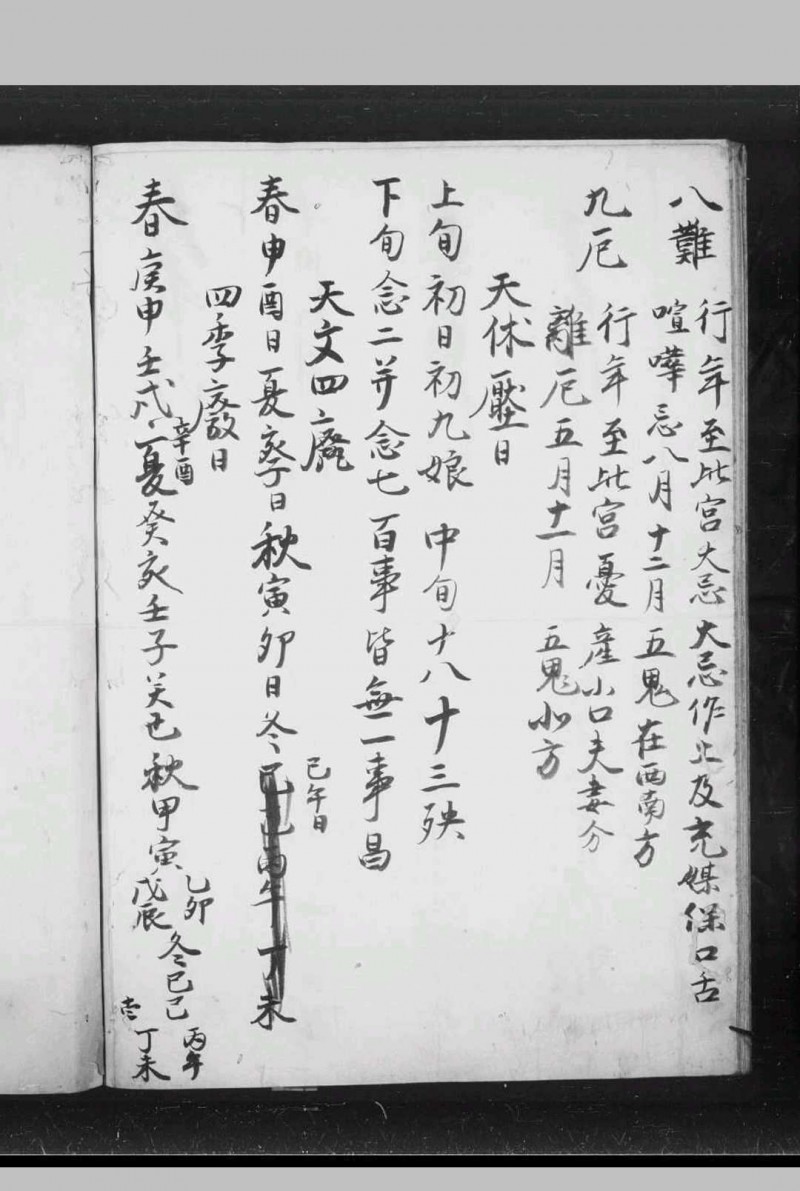 八難
行年至此宮大忌大忌作上及充媒保口舌
喧嘩忌八月十二月五鬼在西南方
九厄
行年至此宮憂產小口夫妻分
離厄五月十一月 五鬼北方
天休壓日
上旬初日初九娘 中旬十八十三殃
下旬念二并念七 百事皆無一事昌
天文四廢
春申酉日夏亥子日秋寅卯日冬
巳午日
未
四季廢日
春庚申壬戌 夏癸亥壬子癸巳秋甲寅
辛酉
乙卯
戊辰
冬巳己
丙午
丁未